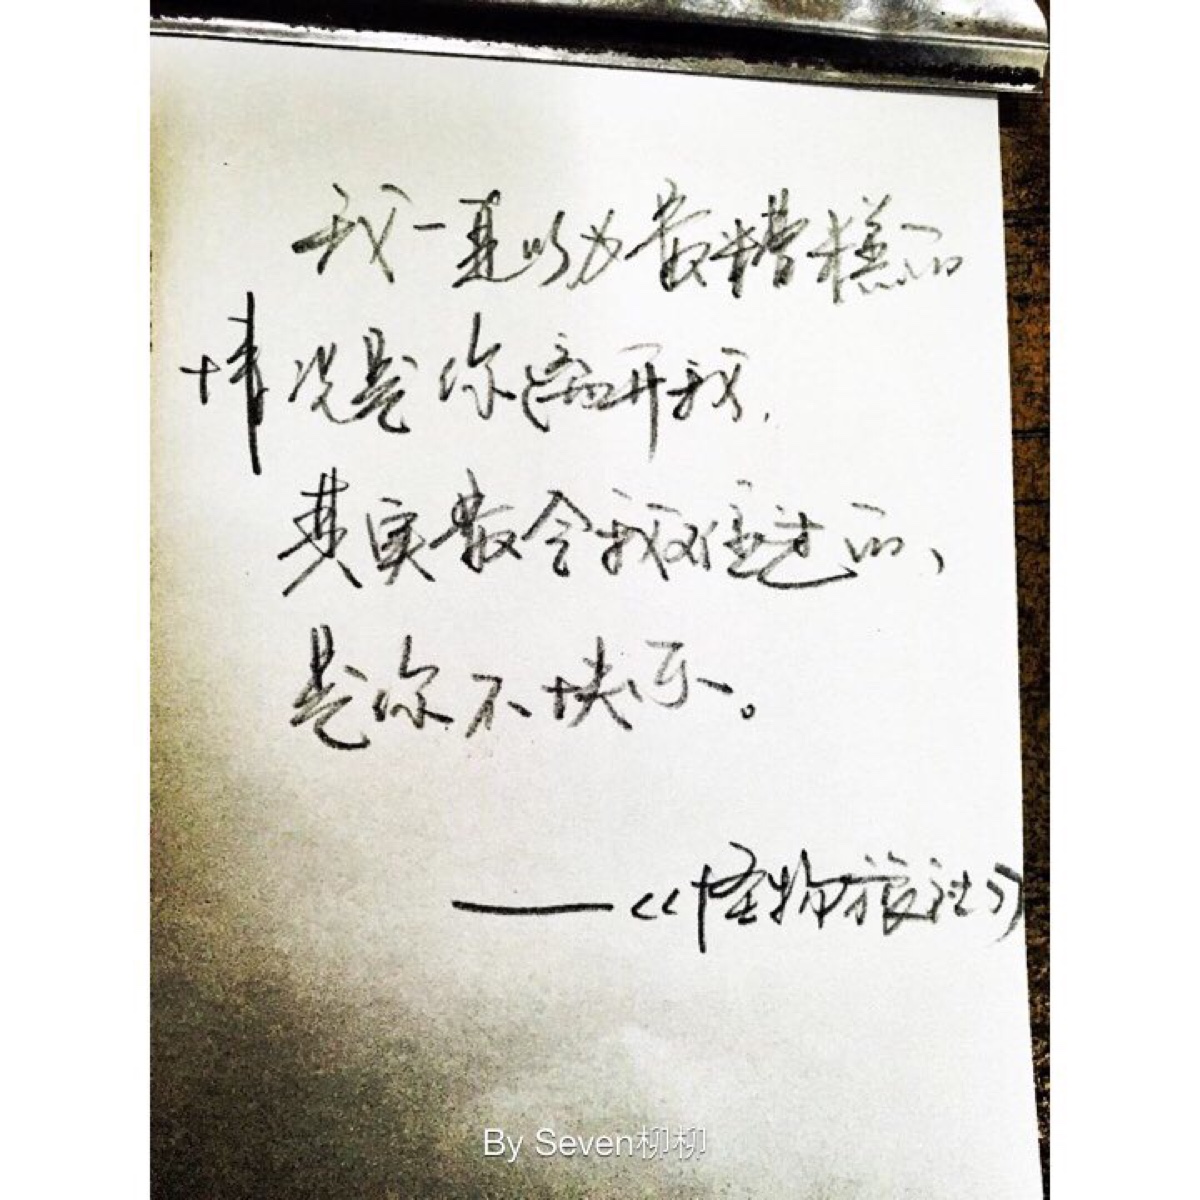 我一直以为最糟糕的
情况是你离开我,
其实最令我难过的、
是你不快乐。
——《怪物旅社》
By Seven柳柳